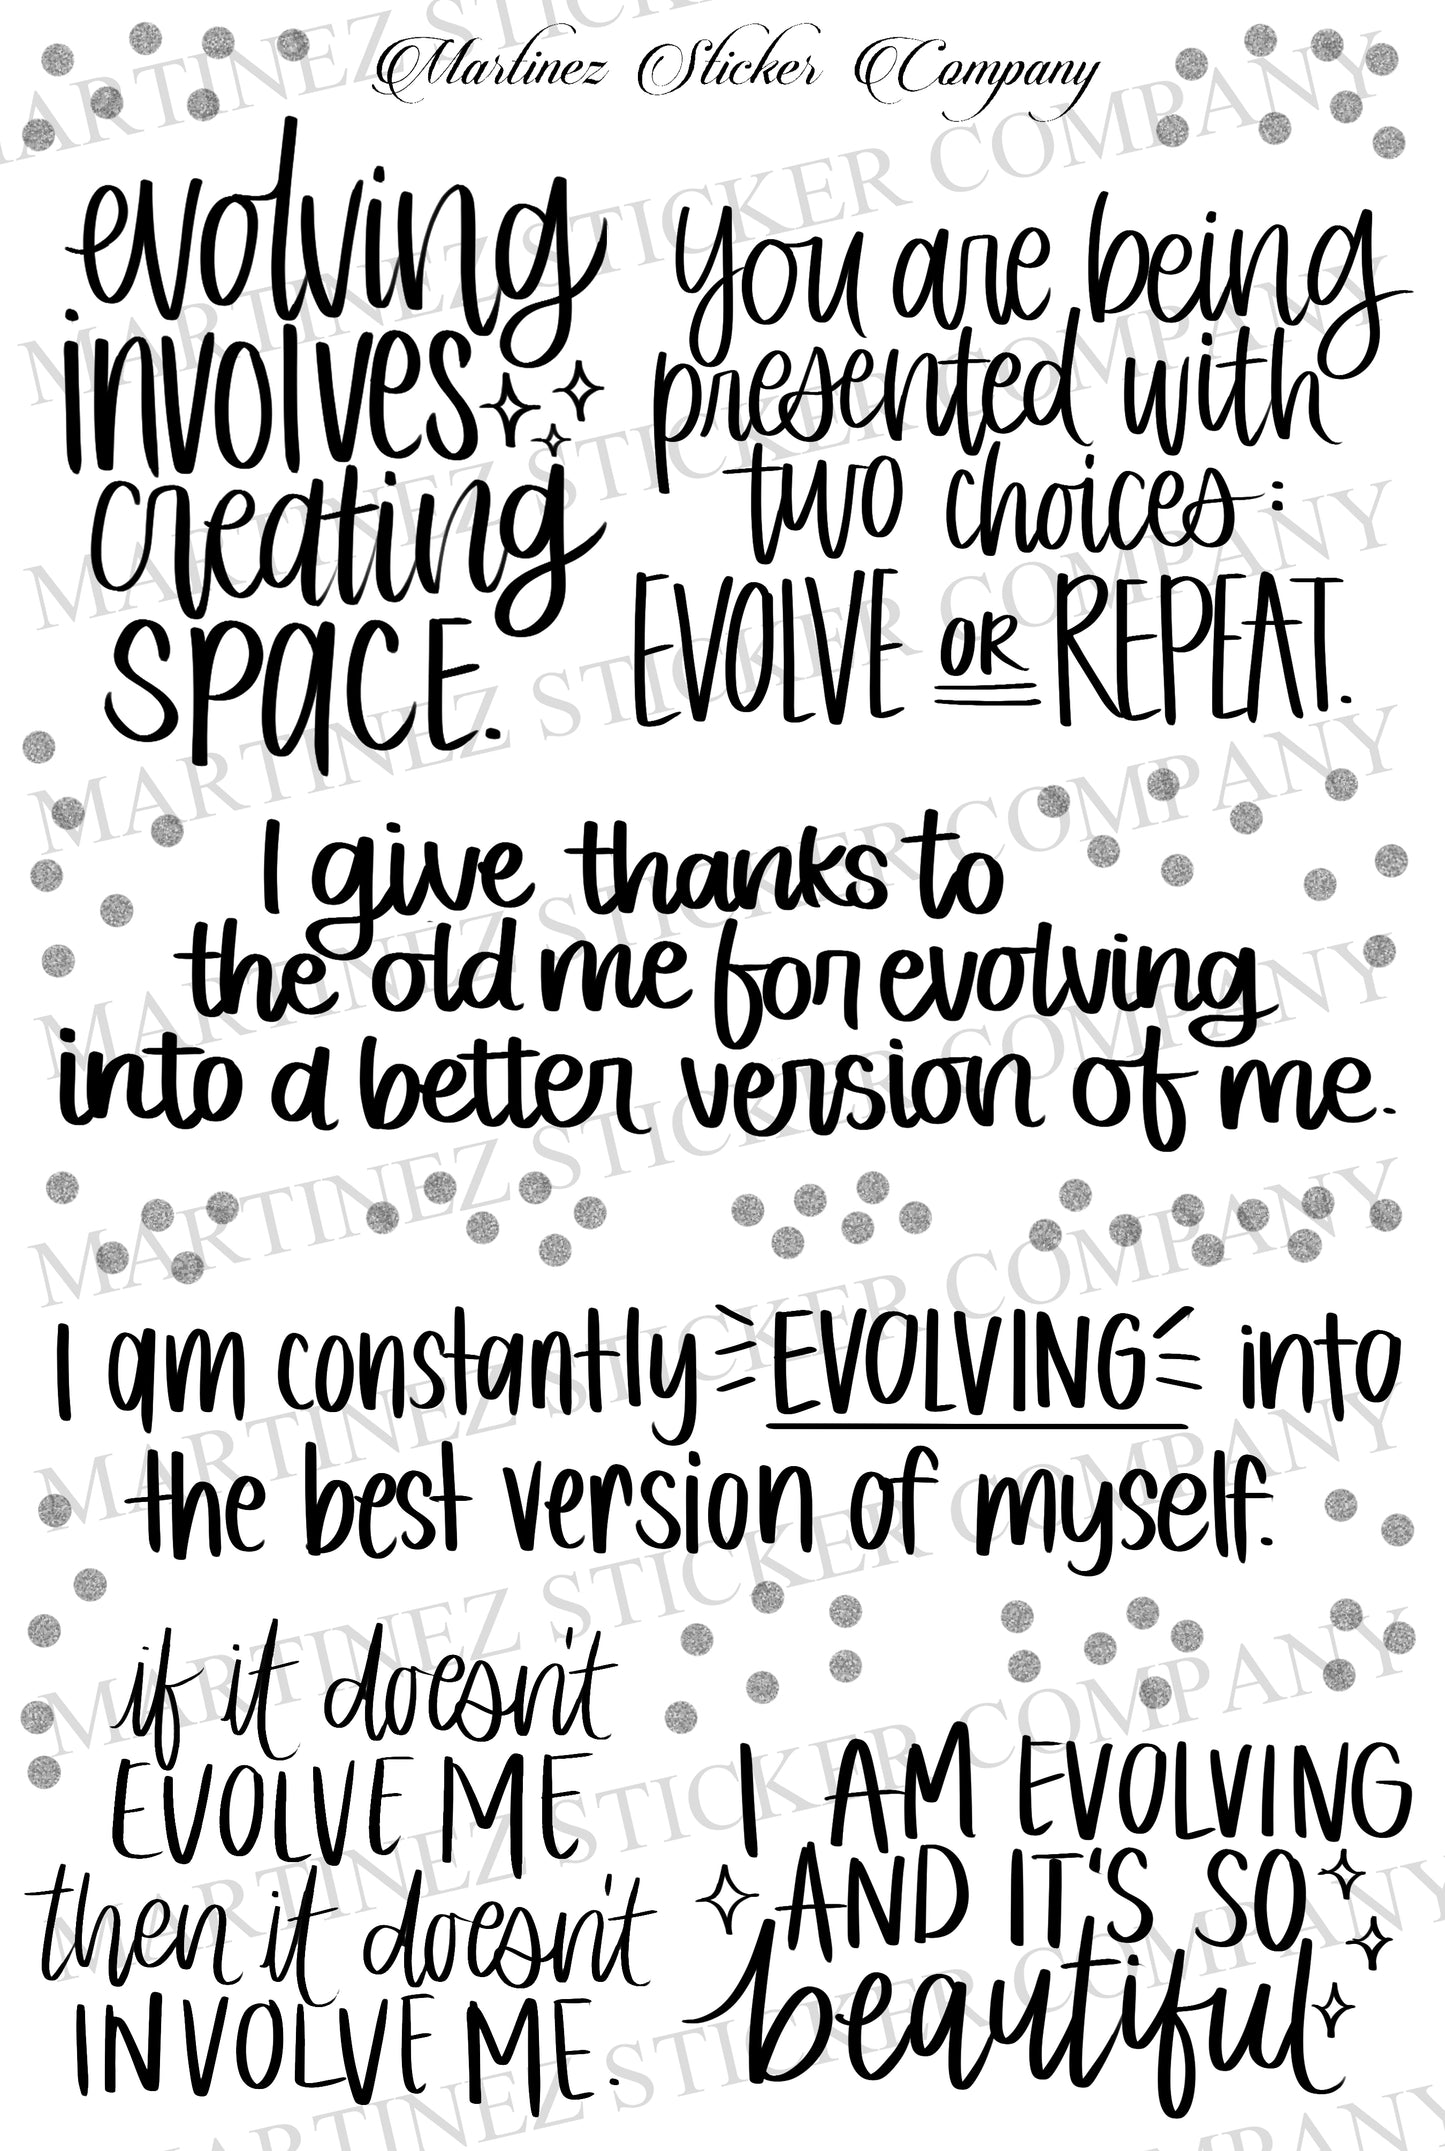 Martinez Sticker Company
evolving
involves
creating
SPACE.
You are being
presented with
two choices:
EVOLVE OR REPEAT.
I give thanks to
the old me for evolving
into a better version of me.
I am constantly EVOLVING into
the best version of myself.
if it doesn't
EVOLVE ME
then it doesn't
INVOLVE ME.
I AM EVOLVING
AND IT'S SO
beautiful
MARTINEZ STICKER COMPANY
MARTINEZ STICKER COMPANY
MARTINEZ STICKER COMPANY
MARTINEZ STICKER COMPANY
MARTINEZ STICKER COMPANY
MARTINEZ STICKER COMPANY
MARTINEZ STICKER COMPANY
MARTINEZ STICKER COMPANY
MARTINEZ STICKER COMPANY
MARTINEZ STICKER COMPANY